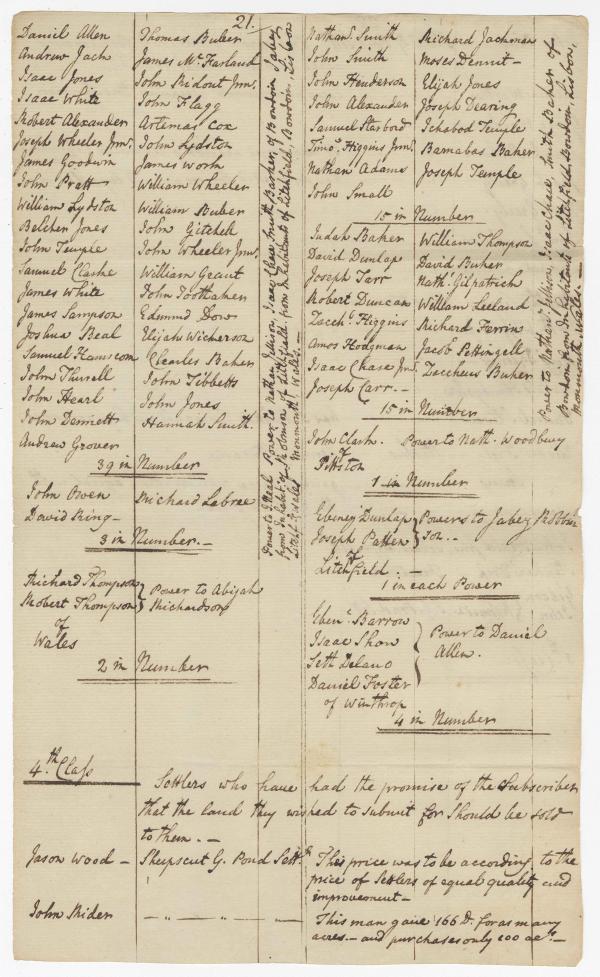 21.
Daniel Allen
Andrew Jack
Isaac Jones
Isaac White
Robert Alexander
Joseph Wheeler Junr.
James Goodwin
John Pratt
William Lydston
Belcher Jones
John Temple
Samuel Clarke
James White
James Sampson
Joshua Beal
Samuel Hanscom
John Thurell
John Hearl
John Dennett
Andrew Grover
Thomas Buber
James Mc. Farland
John Ridout Junr.
John Flagg
Artemas Cox
John Lydston
James Work
William Wheeler
William Buber
John Gitchell
John Wheeler Junr.
William Grant
John Toothaker
Edmund Dow
Elijah Wickerson
Charles Baker
John Tibbetts
John Jones
Hannah Smith.
39 in Number
John Owen
David King -
Richard Labree
3 in Number. -
Richard Thompson
Robert Thompson
of
Wales
Power to Abijah
Richardson
2 in Number
Nathanl. Smith
John Smith
John Henderson
John Alexander
Samuel Starbord
Timoy. Higgins Junr.
Nathan Adams
John Small
Richard Jackman
Moses Dennit -
Elijah Jones
Joseph Dearing
Ichabod Temple
Barnabas Baker
Joseph Temple
15 in Number
Judah Baker
David Dunlap
Joseph Tarr
Robert Duncan
Zacchs. Higgins
Amos Hodgman
Isaac Chase Jnr.
Joseph Carr. -
William Thompson
David Buker
Nathl. Gilpatrick
William Leeland
Richard Ferrin
Jacob Pettingell
Zaccheus Buker
15 in Number
Power to Nathanl. Jellison, Isaac Chase, Smith Baker of
Bowdoin from Inhabitants of Litchfield, Bowdoin, Lisbon,
Monmouth Wales. -
John Clark.
of
Pittston
Power to Nath. Woodbury
1 in Number
Ebenezr Dunlap
Joseph Patten
of
Litchfield. -
Powers to Jabez
son. -
1 in each Power
Ebenr. Barrow
Isaac Shaw
Seth Delano
Daniel Foster
of Winthrop
Power to Daniel
Allen.
4 in Number
4.th Class
Settlers who have had the promise of the Subscriber
that the land they wished to submit for should be sold
to them. -
Jason Wood -
Sheepscut G. Pond Settt.
This price was to be according to the
price of Settlers of equal quality and
improvement -
John Rider
- " - " - " -
This man gave 166 D. for as many
acres. - and purchases only 100 acs. -